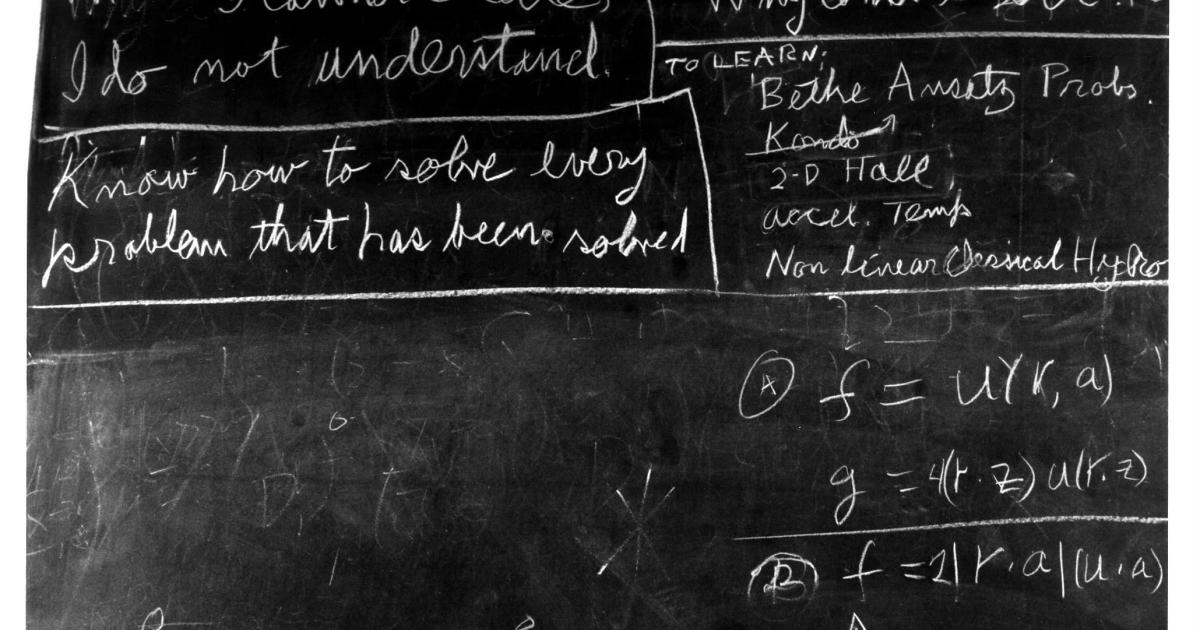 I do not understand.
Know how to solve every
problem that has been solved
TO LEARN:
Bethe Ansatz Probs.
Kondo
2-D Hall
accel. Temp
Non linear Classical Hydro
A f = u(r, a)
g = 4(r·z) u(r.z)
B f = 2|r.a|(u.a)